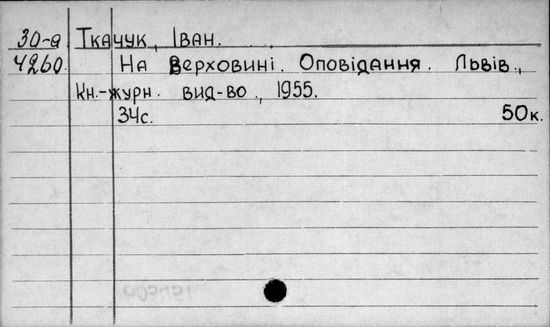 30-а Ткачук, Іван.
4260. На Верховині. Оповідання. Львів.,
Кн.-журн. вид-во., 1955.
34с. 50к.